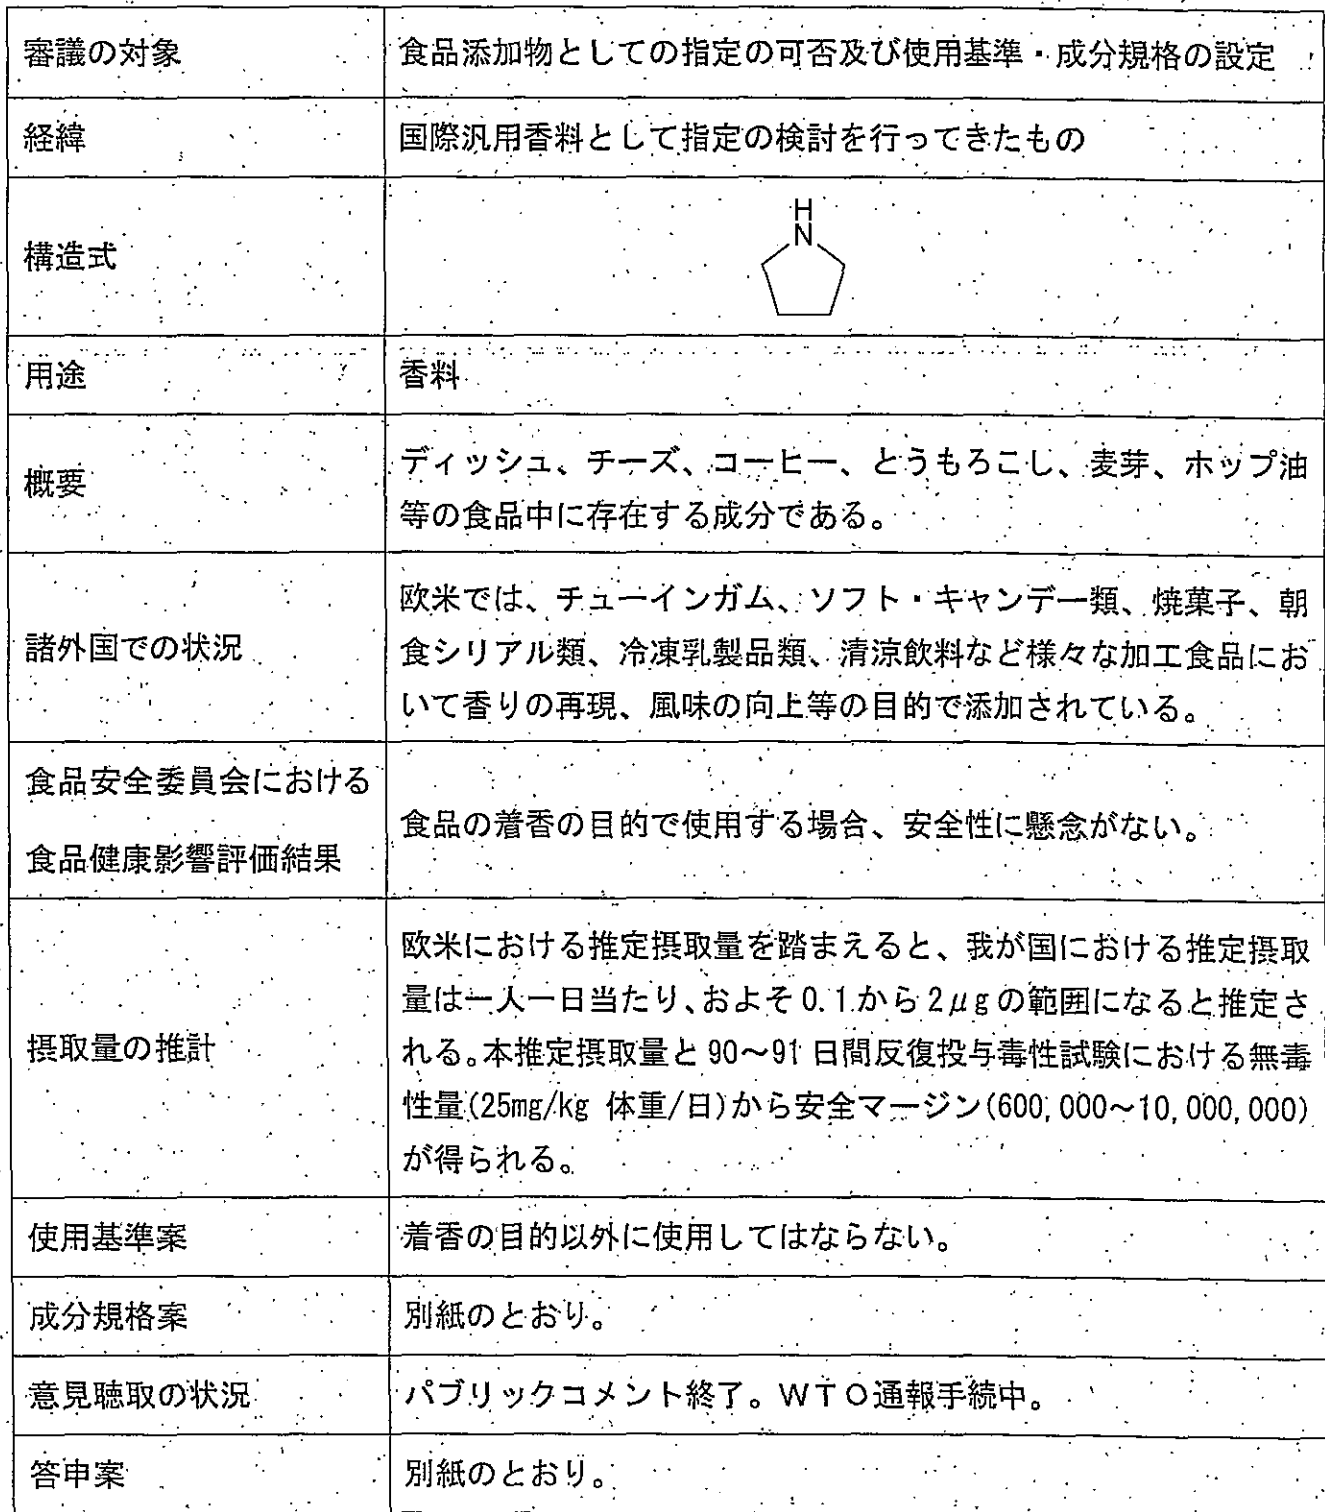 審議の対象
食品添加物としての指定の可否及び使用基準・成分規格の設定
経緯
国際汎用香料として指定の検討を行ってきたもの
構造式
H
N
用途
香料
概要
ディッシュ、チーズ、コーヒー、とうもろこし、麦芽、ホップ油
等の食品中に存在する成分である。
諸外国での状況
欧米では、チューインガム、ソフト・キャンデー類、焼菓子、朝
食シリアル類、冷凍乳製品類、清涼飲料など様々な加工食品にお
いて香りの再現、風味の向上等の目的で添加されている。
食品安全委員会における
食品健康影響評価結果
食品の着香の目的で使用する場合、安全性に懸念がない。
摂取量の推計
欧米における推定摂取量を踏まえると、我が国における推定摂取
量は一人一日当たり、およそ0.1から2μgの範囲になると推定さ
れる。本推定摂取量と90～91日間反復投与毒性試験における無毒
性量(25mg/kg 体重/日)から安全マージン(600,000～10,000,000)
が得られる。
使用基準案
着香の目的以外に使用してはならない。
成分規格案
別紙のとおり。
意見聴取の状況
パブリックコメント終了。WTO通報手続中。
答申案
別紙のとおり。